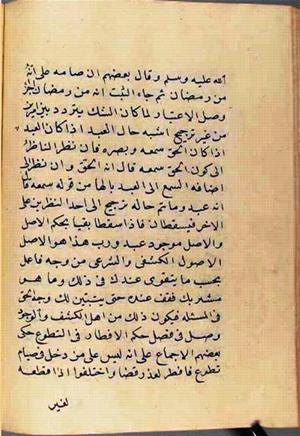 الله عليه وسلم وقال بعضهم ان صامه على انه
من رمضان ثم جاء الثبت انه من رمضان اجزأ
وصل الاعتبار لما كان الشك يتردد بين امرين
من غير ترجيح اشبه حال العبد اذا كان العبد
اذا كان الحق سمعه وبصره قال نظر الناظر
الى كون الحق سمعه قال انه الحق وان نظر الى
اضافة السمع الى العبد بالها من قوله سمعه قال
انه عبد وما ثم حالة ترجح الى احد النظرين على
الاخر فيسقطان فاذا سقطا بقيا بحكم الاصل
والاصل موجود عبد ورب هذا هو الاصل
الاصول الكشفي والشرعي من وجه فاعمل
بحسب ما يتقوى عندك في ذلك وما هو
مشهدك فقف عنده حتى يتبين لك وجه الحق
في المسئلة فيكون ذلك من اهل الكشف والوجود
وصل في فصل حكم الافطار في التطوع حكى
بعضهم الاجماع على انه ليس على من دخل في صيام
تطوع فافطر لعذر قضا واختلفوا اذا قطعه
لغير